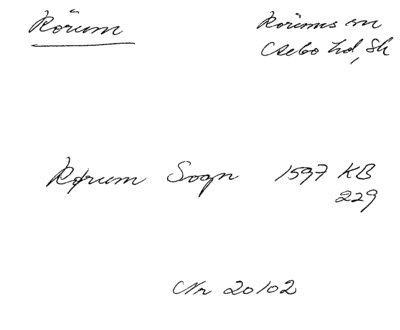 Rörum
Rörums sn
Csebo hd, Sk
Rørum Sogn 1597 KB
229
Nr 20102